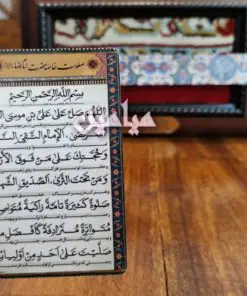 صلوات خاصه حضرت امام رضا
بِسْمِ اللهِ الرَّحْمٰنِ الرَّحِيمِ
اَللّٰهُمَّ صَلِّ عَلىٰ عَلِيِّ بْنِ مُوسَى
الْاِمامِ التَّقِيِّ
وَحُجَّتِكَ عَلىٰ مَنْ فَوْقَ الْاَرْ
وَمَنْ تَحْتَ الثَّرىٰ، اَلصِّدّيقِ الشَّه
صَلوةً كَثيرَةً تامَّةً زاكِيَةً مُتَواصِ
مُتَواتِرَةً مُتَرادِفَةً كَاَفْضَلِ ما
صَلَّيْتَ عَلىٰ اَحَدٍ مِنْ اَوْلِيا